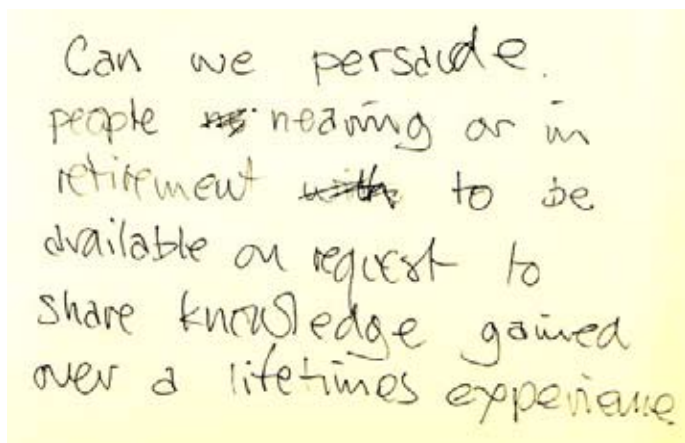 Can we persaude.
people nearing or in
retirement to be
available on request to
share knowledge gained
over a lifetimes experience